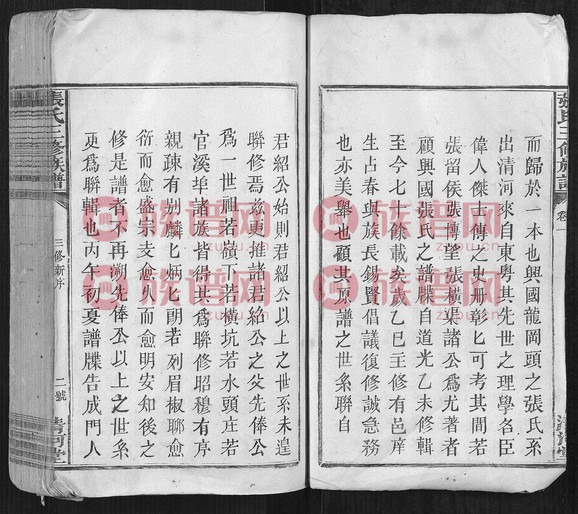 張氏三修族譜
而歸於一本也興國龍岡頭之張氏系
出清河來自東粵其先世之理學名臣
偉人傑古傳之史册彰匕可考其間若
張留侯張博望張橫渠諸公爲尤著者
顧興國張氏之譜牒自道光乙未修輯
至今七十餘載矣歲乙巳主修有邑庠
生占春與族長錫賢倡議復修誠急務
也亦美舉也顧其原譜之世系聯自
君紹公始則君紹公以上之世系未遑
聯修焉茲更推諸君紹公之父先俸公
爲一世祖若嶺下若橫坑若水頭庄若
官溪垾諸族皆得共爲聯修昭穆有序
親疎有別麟匕炳匕朗若列眉椒聊愈
衍而愈盛宗支愈久而愈明安知後之
修是譜者不再朔先俸公以上之世系
更爲聯輯也丙午初夏譜牒告成門人
張氏三修族譜
三修新序
二號
清河堂
族谱网
www.zupu.cn